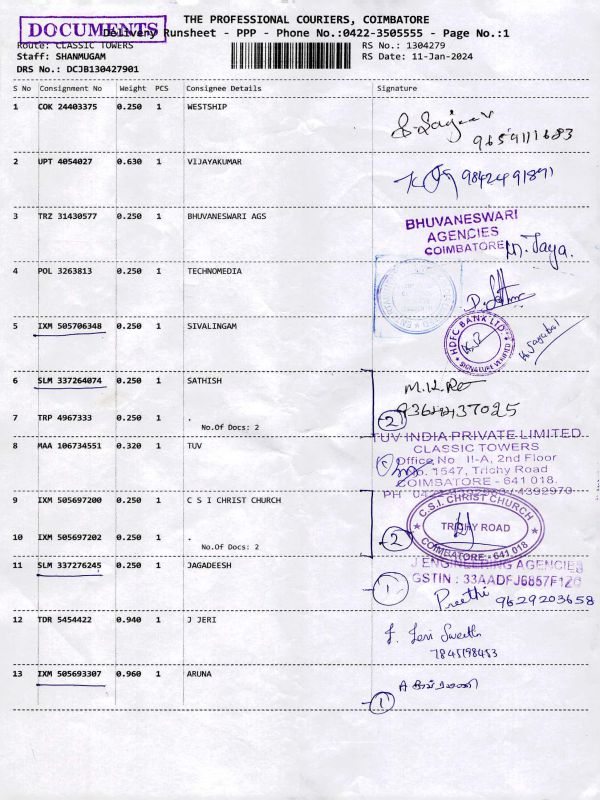 DOCUMENTS
THE PROFESSIONAL COURIERS, COIMBATORE
Delivery Runsheet - PPP - Phone No.:0422-3505555 - Page No.:1
Route: CLASSIC TOWERS RS No.: 1304279
Staff: SHANMUGAM RS Date: 11-Jan-2024
DRS No.: DCJB130427901
S No Consignment No Weight PCS Consignee Details Signature
1 COK 24403375 0.250 1 WESTSHIP
9659111683
2 UPT 4054027 0.630 1 VIJAYAKUMAR
9842491891
3 TRZ 31430577 0.250 1 BHUVANESWARI AGS
BHUVANESWARI
AGENCIES
COIMBATORE
M. Jaya.
4 POL 3263813 0.250 1 TECHNOMEDIA
5 IXM 505706348 0.250 1 SIVALINGAM
HDFC BANK LTD
SIGNATURE VERIFIED
6 SLM 337264074 0.250 1 SATHISH
7 TRP 4967333 0.250 1 .
No.Of Docs: 2
2
9364437025
8 MAA 106734551 0.320 1 TUV
TUV INDIA PRIVATE LIMITED
CLASSIC TOWERS
Office No II-A, 2nd Floor
No. 1547, Trichy Road
COIMBATORE - 641 018.
9 IXM 505697200 0.250 1 C S I CHRIST CHURCH
10 IXM 505697202 0.250 1 .
No.Of Docs: 2
2
C.S.I. CHRIST CHURCH
TRICHY ROAD
COIMBATORE - 641 018
11 SLM 337276245 0.250 1 JAGADEESH
J ENGINEERING AGENCIES
GSTIN : 33AADFJ6857F1Z6
1
Preethi 9629203658
12 TDR 5454422 0.940 1 J JERI
J. Jeri Swetts
7845198453
13 IXM 505693307 0.960 1 ARUNA
1